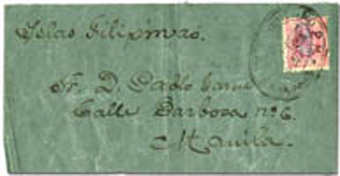 Islas Filipinas.
Sr. D. Pablo
Calle Barboza nº 6.
Manila.